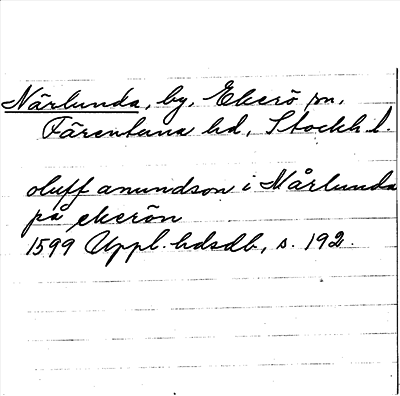 Närlunda, by, Ekerö sn,
Färentuna hd, Stockh. l.
oluff anundson i Nårlunda
på ekerön
1599 Uppl. hdsdb, s. 192.